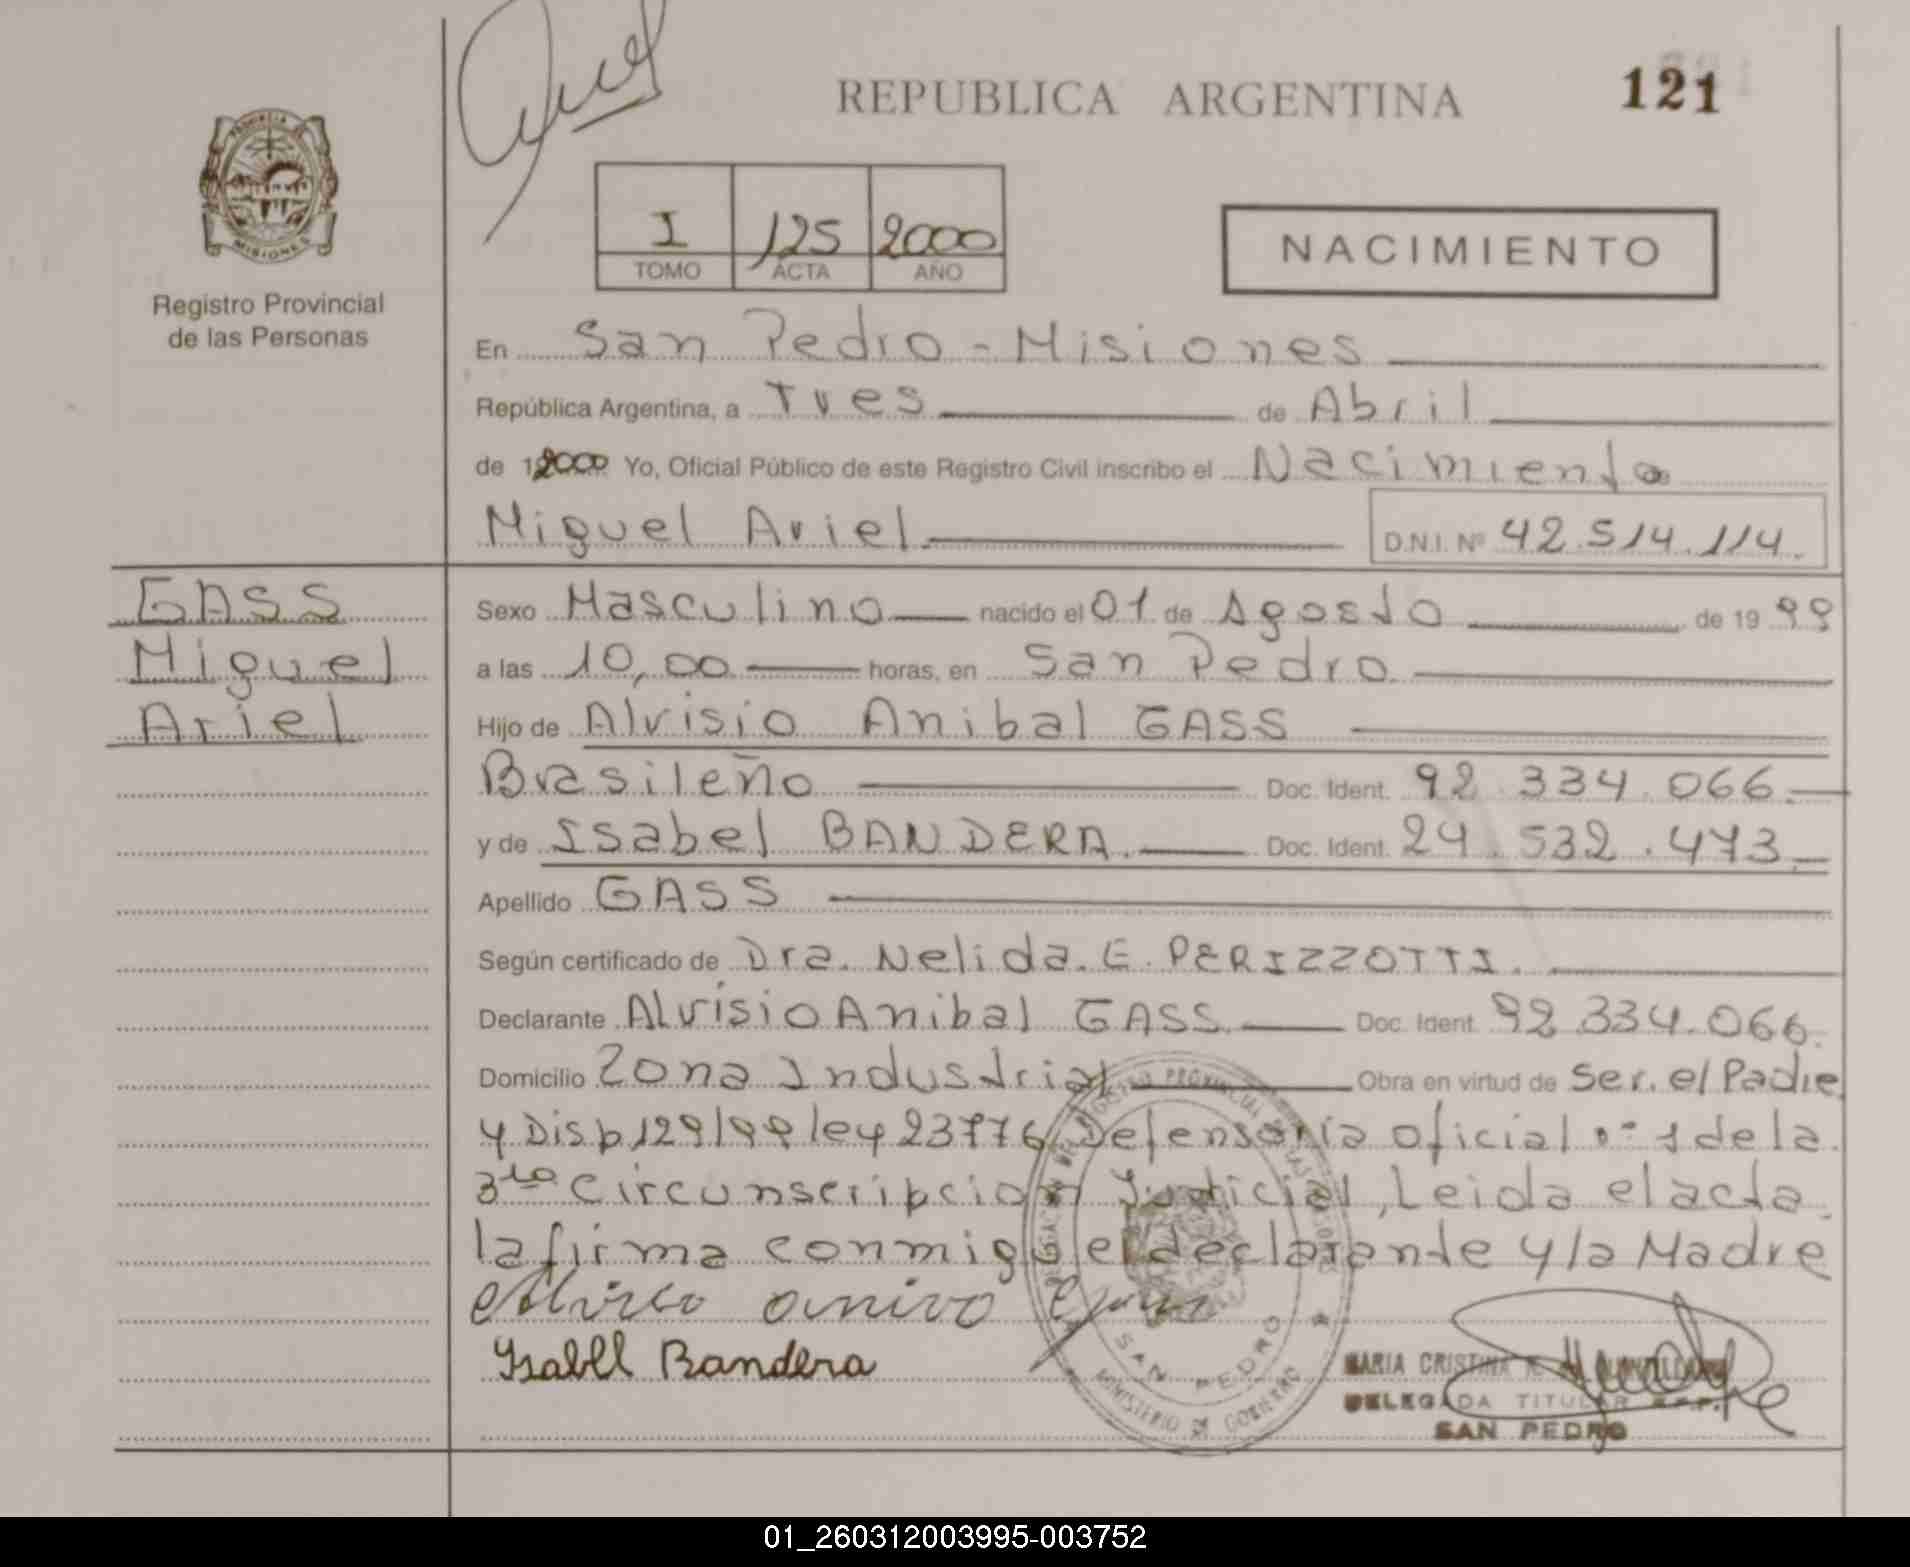 REPUBLICA ARGENTINA
121
PROVINCIA DE
MISIONES
Registro Provincial
de las Personas
I 125 2000
TOMO ACTA AÑO
NACIMIENTO
En San Pedro - Misiones
República Argentina, a Tres de Abril
de 2000 Yo, Oficial Público de este Registro Civil inscribo el Nacimiento
Miguel Ariel D.N.I. Nº 42.514.114.
GASS
Miguel
Ariel
Sexo Masculino nacido el 01 de Agosto de 1999
a las 10,00 horas, en San Pedro
Hijo de Alvisio Anibal GASS
Brasileño Doc. Ident. 92.334.066.
y de Isabel BANDERA. Doc. Ident. 24.532.473.
Apellido GASS
Según certificado de Dra. Nelida. E. PERIZZOTTI.
Declarante Alvisio Anibal GASS Doc. Ident. 92.334.066.
Domicilio Zona Industrial Obra en virtud de Ser. el Padre
y Disp 129/99 ley 23776 Defensoria oficial nº 1 de la
3ra Circunscripcion Judicial, Leida el acta
la firma conmigo el declarante y la Madre
Isabel Bandera
SAN PEDRO
MINISTERIO DE GOBIERNO
MARIA CRISTINA
DELEGADA TITULAR R.P.P.
SAN PEDRO
01_260312003995-003752